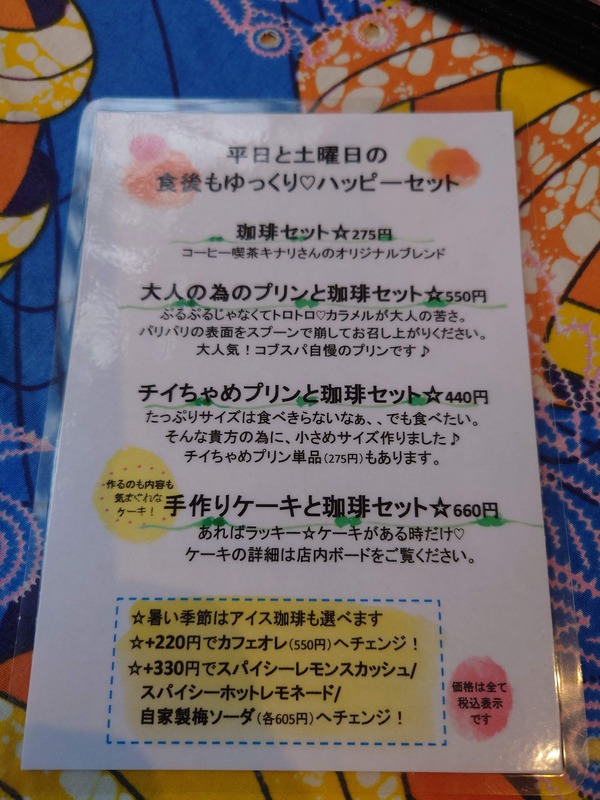 平日と土曜日の
食後もゆっくり♡ハッピーセット
珈琲セット☆275円
コーヒー喫茶キナリさんのオリジナルブレンド
大人の為のプリンと珈琲セット☆550円
ぷるぷるじゃなくてトロトロ♡カラメルが大人の苦さ。
パリパリの表面をスプーンで崩してお召し上がりください。
大人気！コブスパ自慢のプリンです♪
チイちゃめプリンと珈琲セット☆440円
たっぷりサイズは食べきらないなぁ、、でも食べたい。
そんな貴方の為に、小さめサイズ作りました♪
チイちゃめプリン単品(275円)もあります。
作るのも内容も
気まぐれな
ケーキ！
手作りケーキと珈琲セット☆660円
あればラッキー☆ケーキがある時だけ♡
ケーキの詳細は店内ボードをご覧ください。
☆暑い季節はアイス珈琲も選べます
☆+220円でカフェオレ(550円)へチェンジ！
☆+330円でスパイシーレモンスカッシュ/
スパイシーホットレモネード/
自家製梅ソーダ(各605円)へチェンジ！
価格は全て
税込表示
です